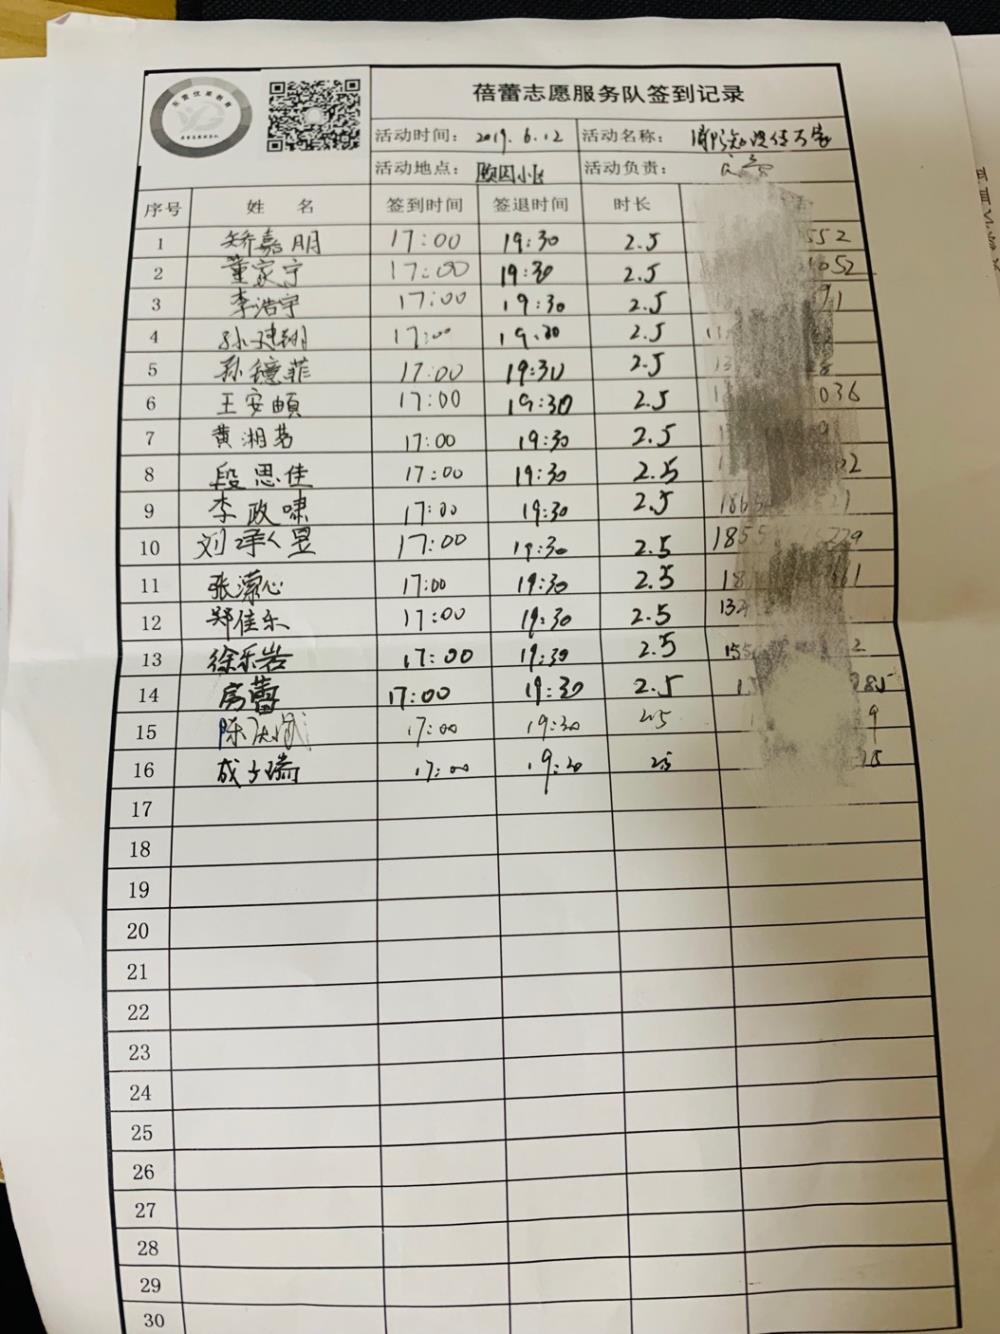 蓓蕾志愿服务队签到记录
活动时间： 2019.6.12 活动名称： 消防知识传万家
活动地点： 活动负责：
序号 姓 名 签到时间 签退时间 时长
1 矫嘉明 17:00 19:30 2.5 552
2 董家宁 17:00 19:30 2.5 052
3 李浩宇 17:00 19:30 2.5
4 17:00 19:30 2.5
5 孙镱菲 17:00 19:30 2.5
6 王安頔 17:00 19:30 2.5 036
7 黄湘茗 17:00 19:30 2.5
8 段思佳 17:00 19:30 2.5
9 李政啸 17:00 19:30 2.5
10 刘承昱 17:00 19:30 2.5 1855
11 张潆心 17:00 19:30 2.5
12 郑佳乐 17:00 19:30 2.5
13 徐乐岩 17:00 19:30 2.5
14 房蕾 17:00 19:30 2.5 85
15 17:00 19:30 2.5 9
16 成子瑞 17:00 19:30 2.5
17
18
19
20
21
22
23
24
25
26
27
28
29
30